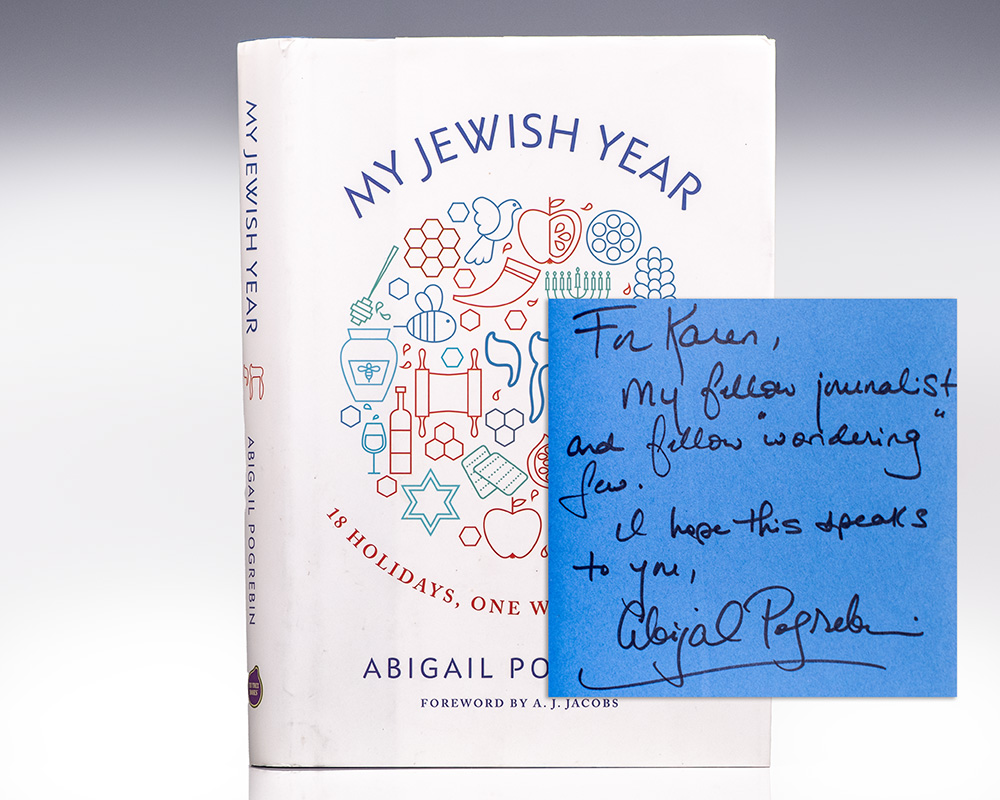 MY JEWISH YEAR
חי
ABIGAIL POGREBIN
MY JEWISH YEAR
חי
18 HOLIDAYS, ONE W
ABIGAIL PO
FOREWORD BY A. J. JACOBS
For Karen,
My fellow journalist
and fellow "wondering"
Jew.
I hope this speaks
to you,
Abigail Pogrebin